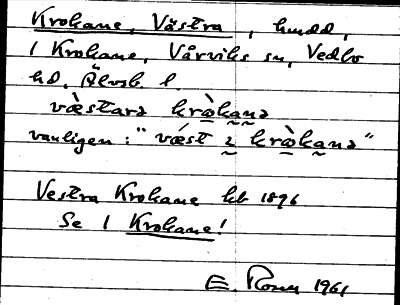 Krokane, Västra, hmdd,
1 Krokane, Vårviks sn, Vedbo
hd, Älvsb. l.
væ̀stara krò̱ka̰na̰
vanligen: "vǽst ḭ krò̱ka̰na"
Vestra Krokane kb 1896
Se 1 Krokane!
E. 1961